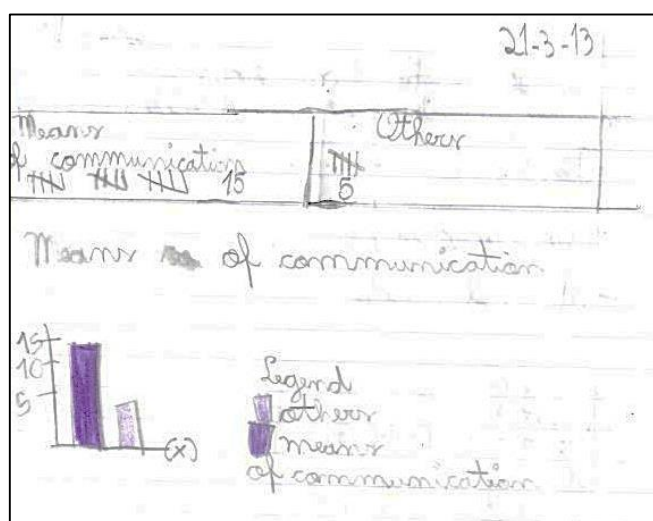 21-3-13
Means
of communication
15
Others
5
Means of communication
15
10
5
(x)
Legend
others
means
of communication